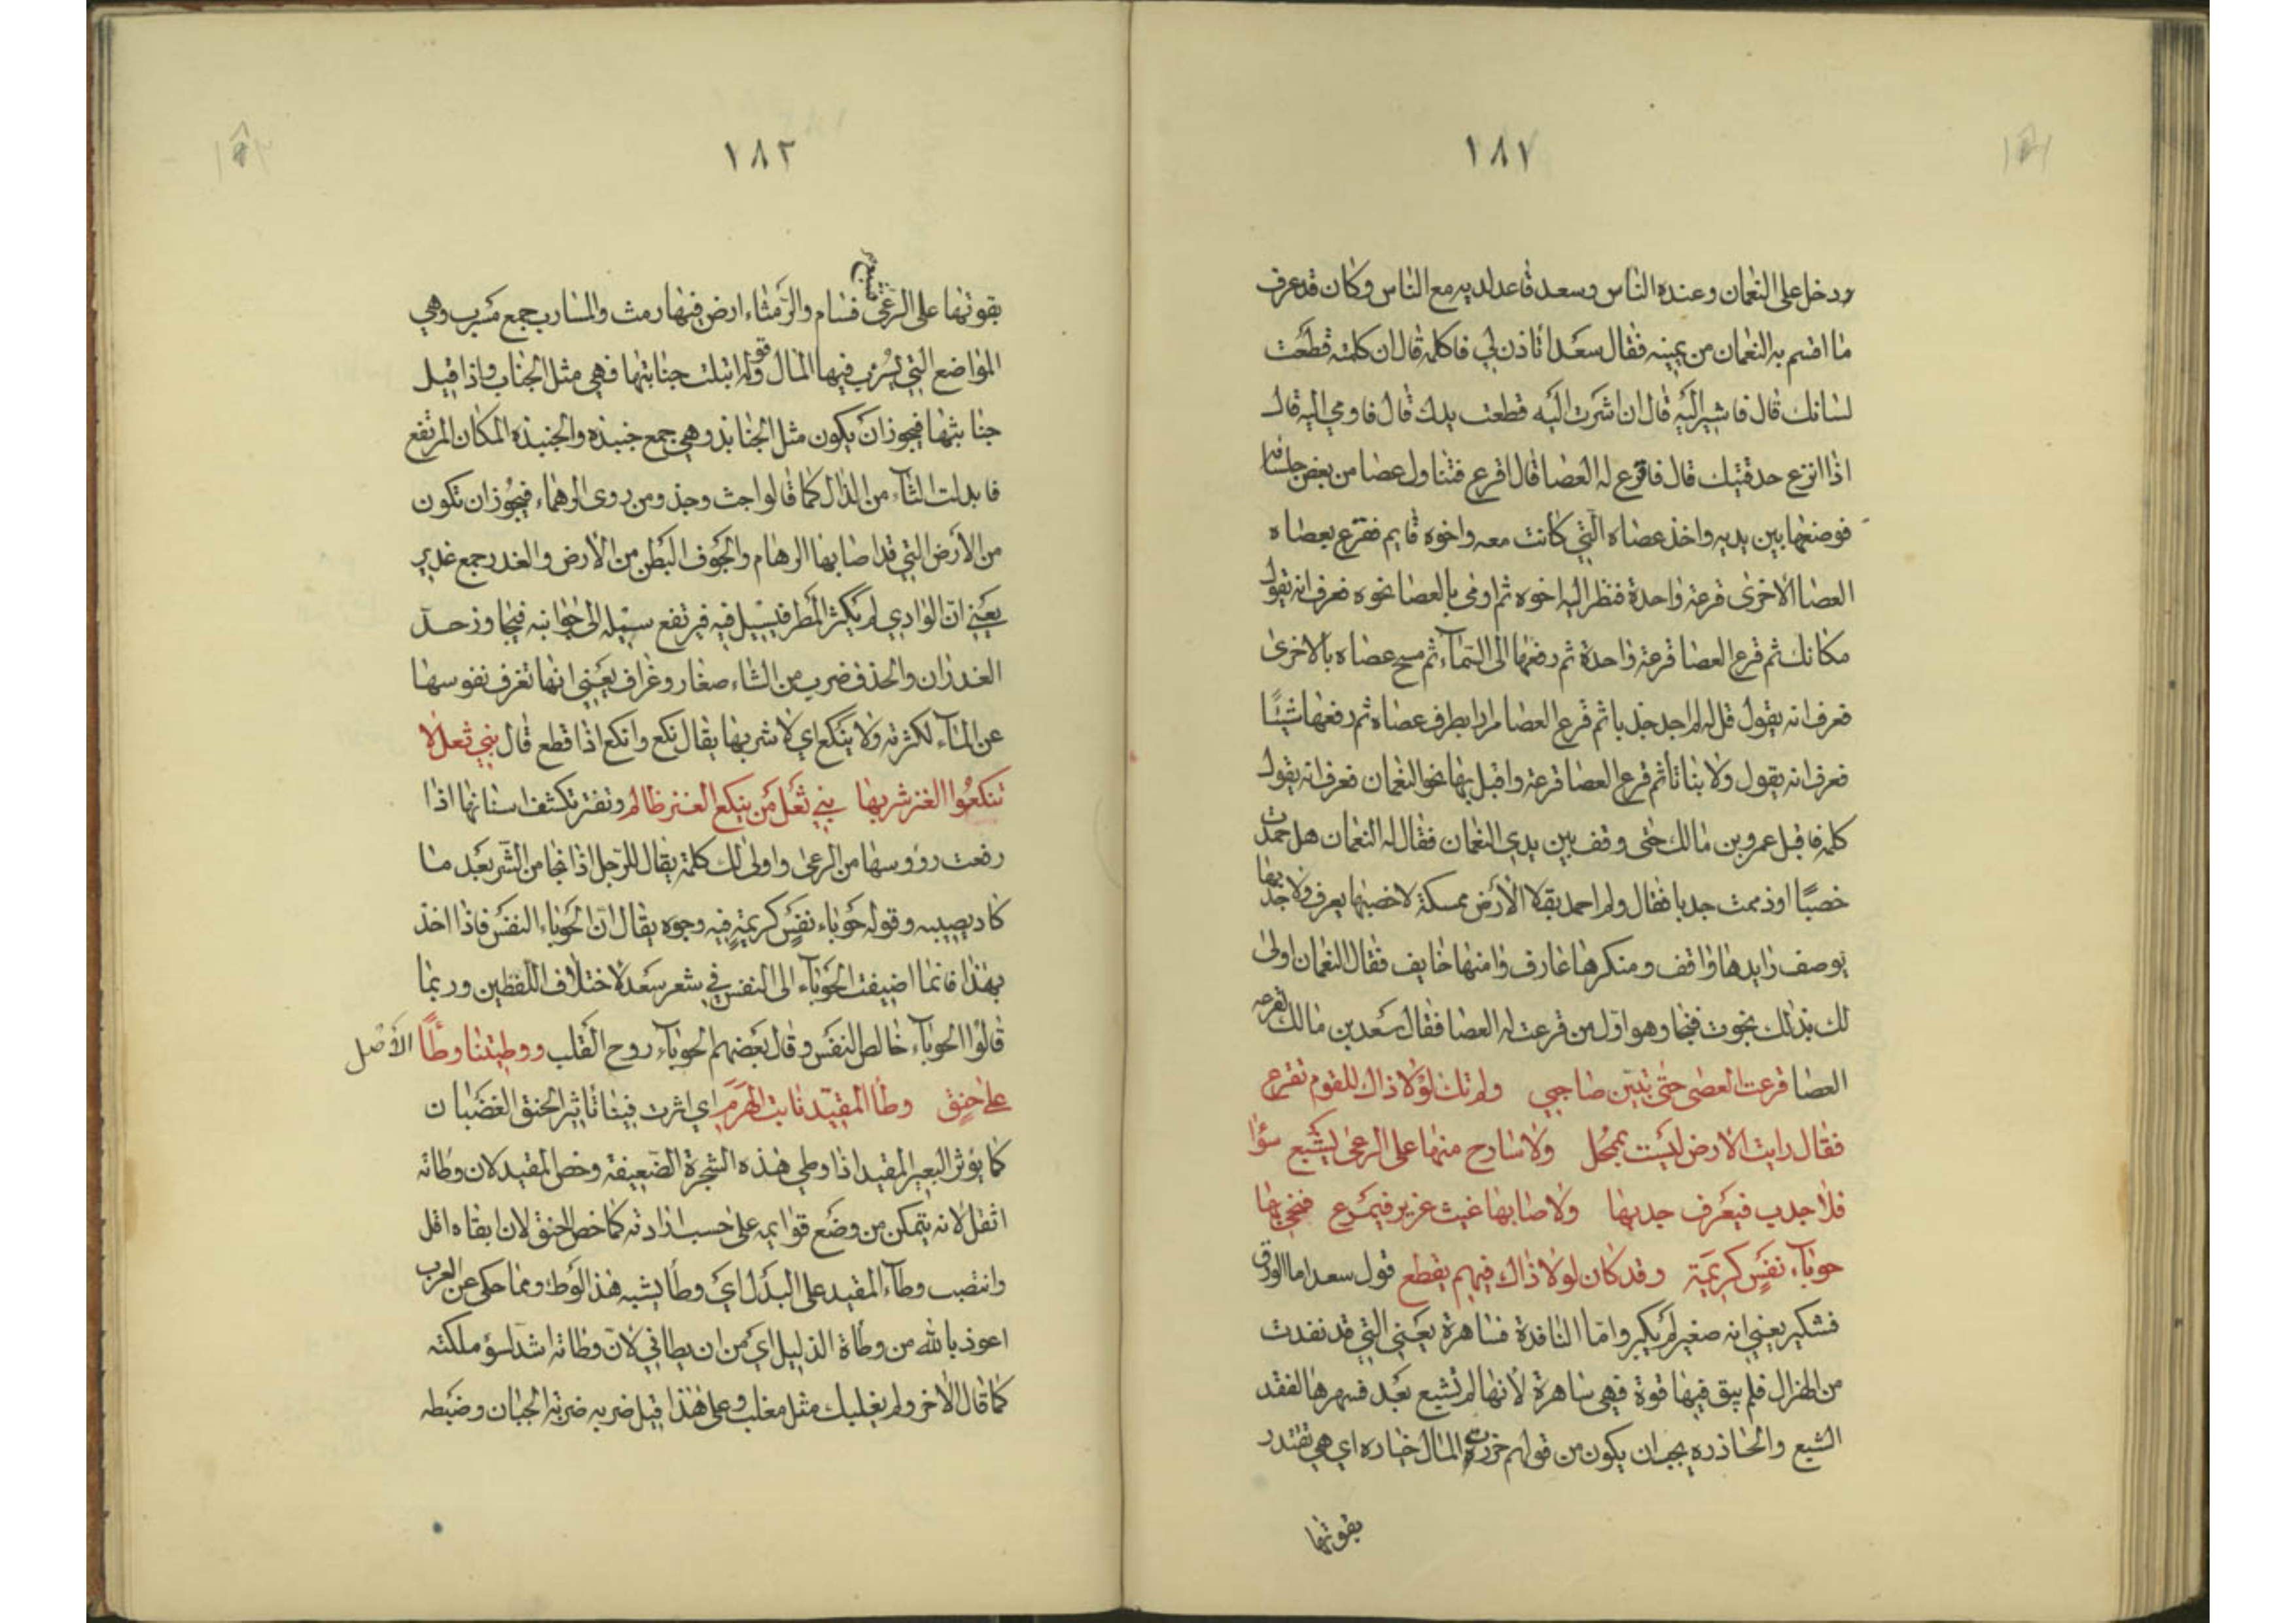 ١٨١
ودخل على النعمان وعنده الناس وسعد قاعد لديه مع الناس وكان قد عرف
ما اقسم به النعمان من يمينه فقال سعد اتاذن لي فاكلمه قال ان كلمته قطعت
لسانك قال فاشير اليه قال ان اشرت اليه قطعت يدك قال فاومي اليه قال
اذا انزع حدقتيك قال فاقرع له العصا قال اقرع فتناول عصا من بعض جلسائه
فوضعها بين يديه واخذ عصاه التي كانت معه واخوه قايم فقرع بعصاه
العصا الاخرى قرعة واحدة فنظر اليه اخوه ثم اومى بالعصا نحوه فعرف انه يقول
مكانك ثم قرع العصا قرعة واحدة ثم رفعها الى السماء ثم مسح عصاه بالاخرى
فعرف انه يقول قل له لم اجد جدبا ثم قرع العصا مرارا بطرف عصاه ثم رفعها شيئا
فعرف انه يقول ولا نباتا ثم قرع العصا قرعة واقبل بها نحو النعمان فعرف انه يقول
كلمه فاقبل عمرو بن مالك حتى وقف بين يدي النعمان فقال له النعمان هل حمدت
خصبًا او ذممت جدبا فقال ولم احمد بقلا الأرض ممسكة لا خصبها يعرف ولا جدبها
يوصف رايدها واقف ومنكرها عارف وامنها خايف فقال النعمان اولى
لك بذلك نجوت فنجا وهو اول من قرعت له العصا فقال سعد بن مالك لقرعه
العصا قرعت العصى حتى تبين صاحبي ولم تك لولا ذاك للقوم تقرع
فقال رايت الارض ليست بممحل ولا سارح منها على الرعى يشبع سؤا
فلا جدب فيعرف جدبها ولا صابها غيث غزير فيمرع فنجى بها
حوباء نفس كريمة وقد كان لولا ذاك فيهم يقطع قول سعد اما الورق
فشكير يعني انه صغير لم يكبر واما النافدة فساهرة يعني التي قد نفدت
من الهزال فلم يبق فيها قوة فهي ساهرة لانها لم تشبع بعد فسهرها لفقد
الشبع والحاذره يجب ان يكون من قولهم حزرة المال خياره اي هي تقتدر
بقوتها
١٨٢
بقوتها على الرعى فتبتغ فسام والرمثاء ارض فيها رمث والمسارب جمع مسرب وهي
المواضع التي يسرب فيها المال وقوله ابتلت جنابتها فهي مثل الجناب واذا قيل
جنابثها فيجوز ان يكون مثل الجنابذ وهي جمع جنبذه والجنبذه المكان المرتفع
فابدلت الثاء من الذال كما قالوا جث وجذ ومن روى الرهماء فيجوز ان تكون
من الأرض التي قد اصابها الرهام والجوف البطن من الأرض والغدر جمع غدير
يعني ان الوادي لم يكثر المطر فيسيل فيه فيرتفع سيله الى جوانبه فيجاوز حد
الغدران والحذف ضرب من الشاء صغار وغراف يعني انها تغرف نفوسها
عن الماء لكثرته ولا ينكع اي لا شربها يقال نكع وانكع اذا قطع قال بني ثعل لا
تنكعوا العنز شربها بني ثعل من ينكع العنز ظالم وتفتر تكشف اسنانها اذا
رفعت رؤوسها من الرعى واولى لك كلمة يقال للرجل اذا نجا من الشر بعد ما
كاد يصيبه وقوله حوباء نفس كريمة فيه وجوه يقال ان الحوباء النفس فاذا اخذ
بهذا فانما اضيفت الحوباء الى النفس في شعر سعد لاختلاف اللفظين وربما
قالوا الحوباء خالص النفس وقال بعضهم الحوباء روح القلب ووطيتنا وطأً الأصل
على حنق وطأ المقيد نابت الهرم اي اثرت فينا تاثير الحنق الغضبان
كما يؤثر البعير المقيد اذا وطي هذه الشجرة الضعيفة وخص المقيد لان وطاته
اثقل لانه يتمكن من وضع قوايمه على حسب ارادته كما خص الحنق لان ابقاه اقل
وانتصب وطاء المقيد على البدل اي وطأ يشبه هذ الوطؤ ومما حكي عن العرب
اعوذ بالله من وطأة الذليل اي من ان يطاني لان وطاته اشد لسؤ ملكته
كما قال الاخر ولم يغلبك مثل مغلب وعلى هذا قيل ضربه ضربة الجبان وضبطه